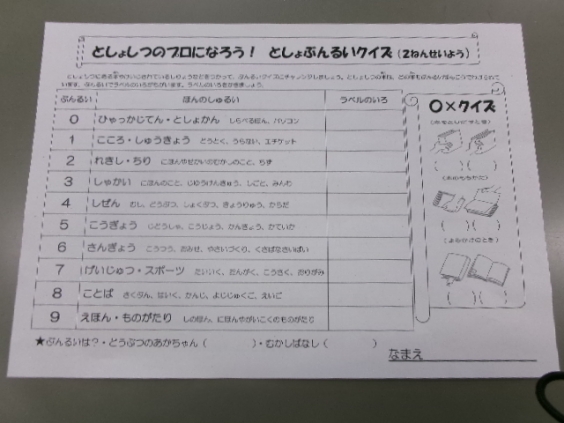 としょしつのプロになろう! としょぶんるいクイズ(2ねんせいよう)
ぶんるい ほんのしゅるい ラベルのいろ
0 ひゃっかじてん・としょかん しらべるほん、パソコン
1 こころ・しゅうきょう どうとく、うらない、エチケット
2 れきし・ちり にほんやせかいのむかしのこと、ちず
3 しゃかい にほんのこと、じゆうけんきゅう、しごと、みんわ
4 しぜん むし、どうぶつ、しょくぶつ、きょうりゅう、からだ
5 こうぎょう じどうしゃ、こうじょう、かんきょう、かていか
6 さんぎょう こうつう、おみせ、やさいづくり、くさばなさいばい
7 げいじゅつ・スポーツ たいいく、おんがく、こうさく、おりがみ
8 ことば さくぶん、はいく、かんじ、よじじゅくご、えいご
9 えほん・ものがたり しのほん、にほんやがいこくのものがたり
★ぶんるいは?・どうぶつのあかちゃん( )・むかしばなし( )
なまえ
○×クイズ
( )( )
( )( )
( )( )